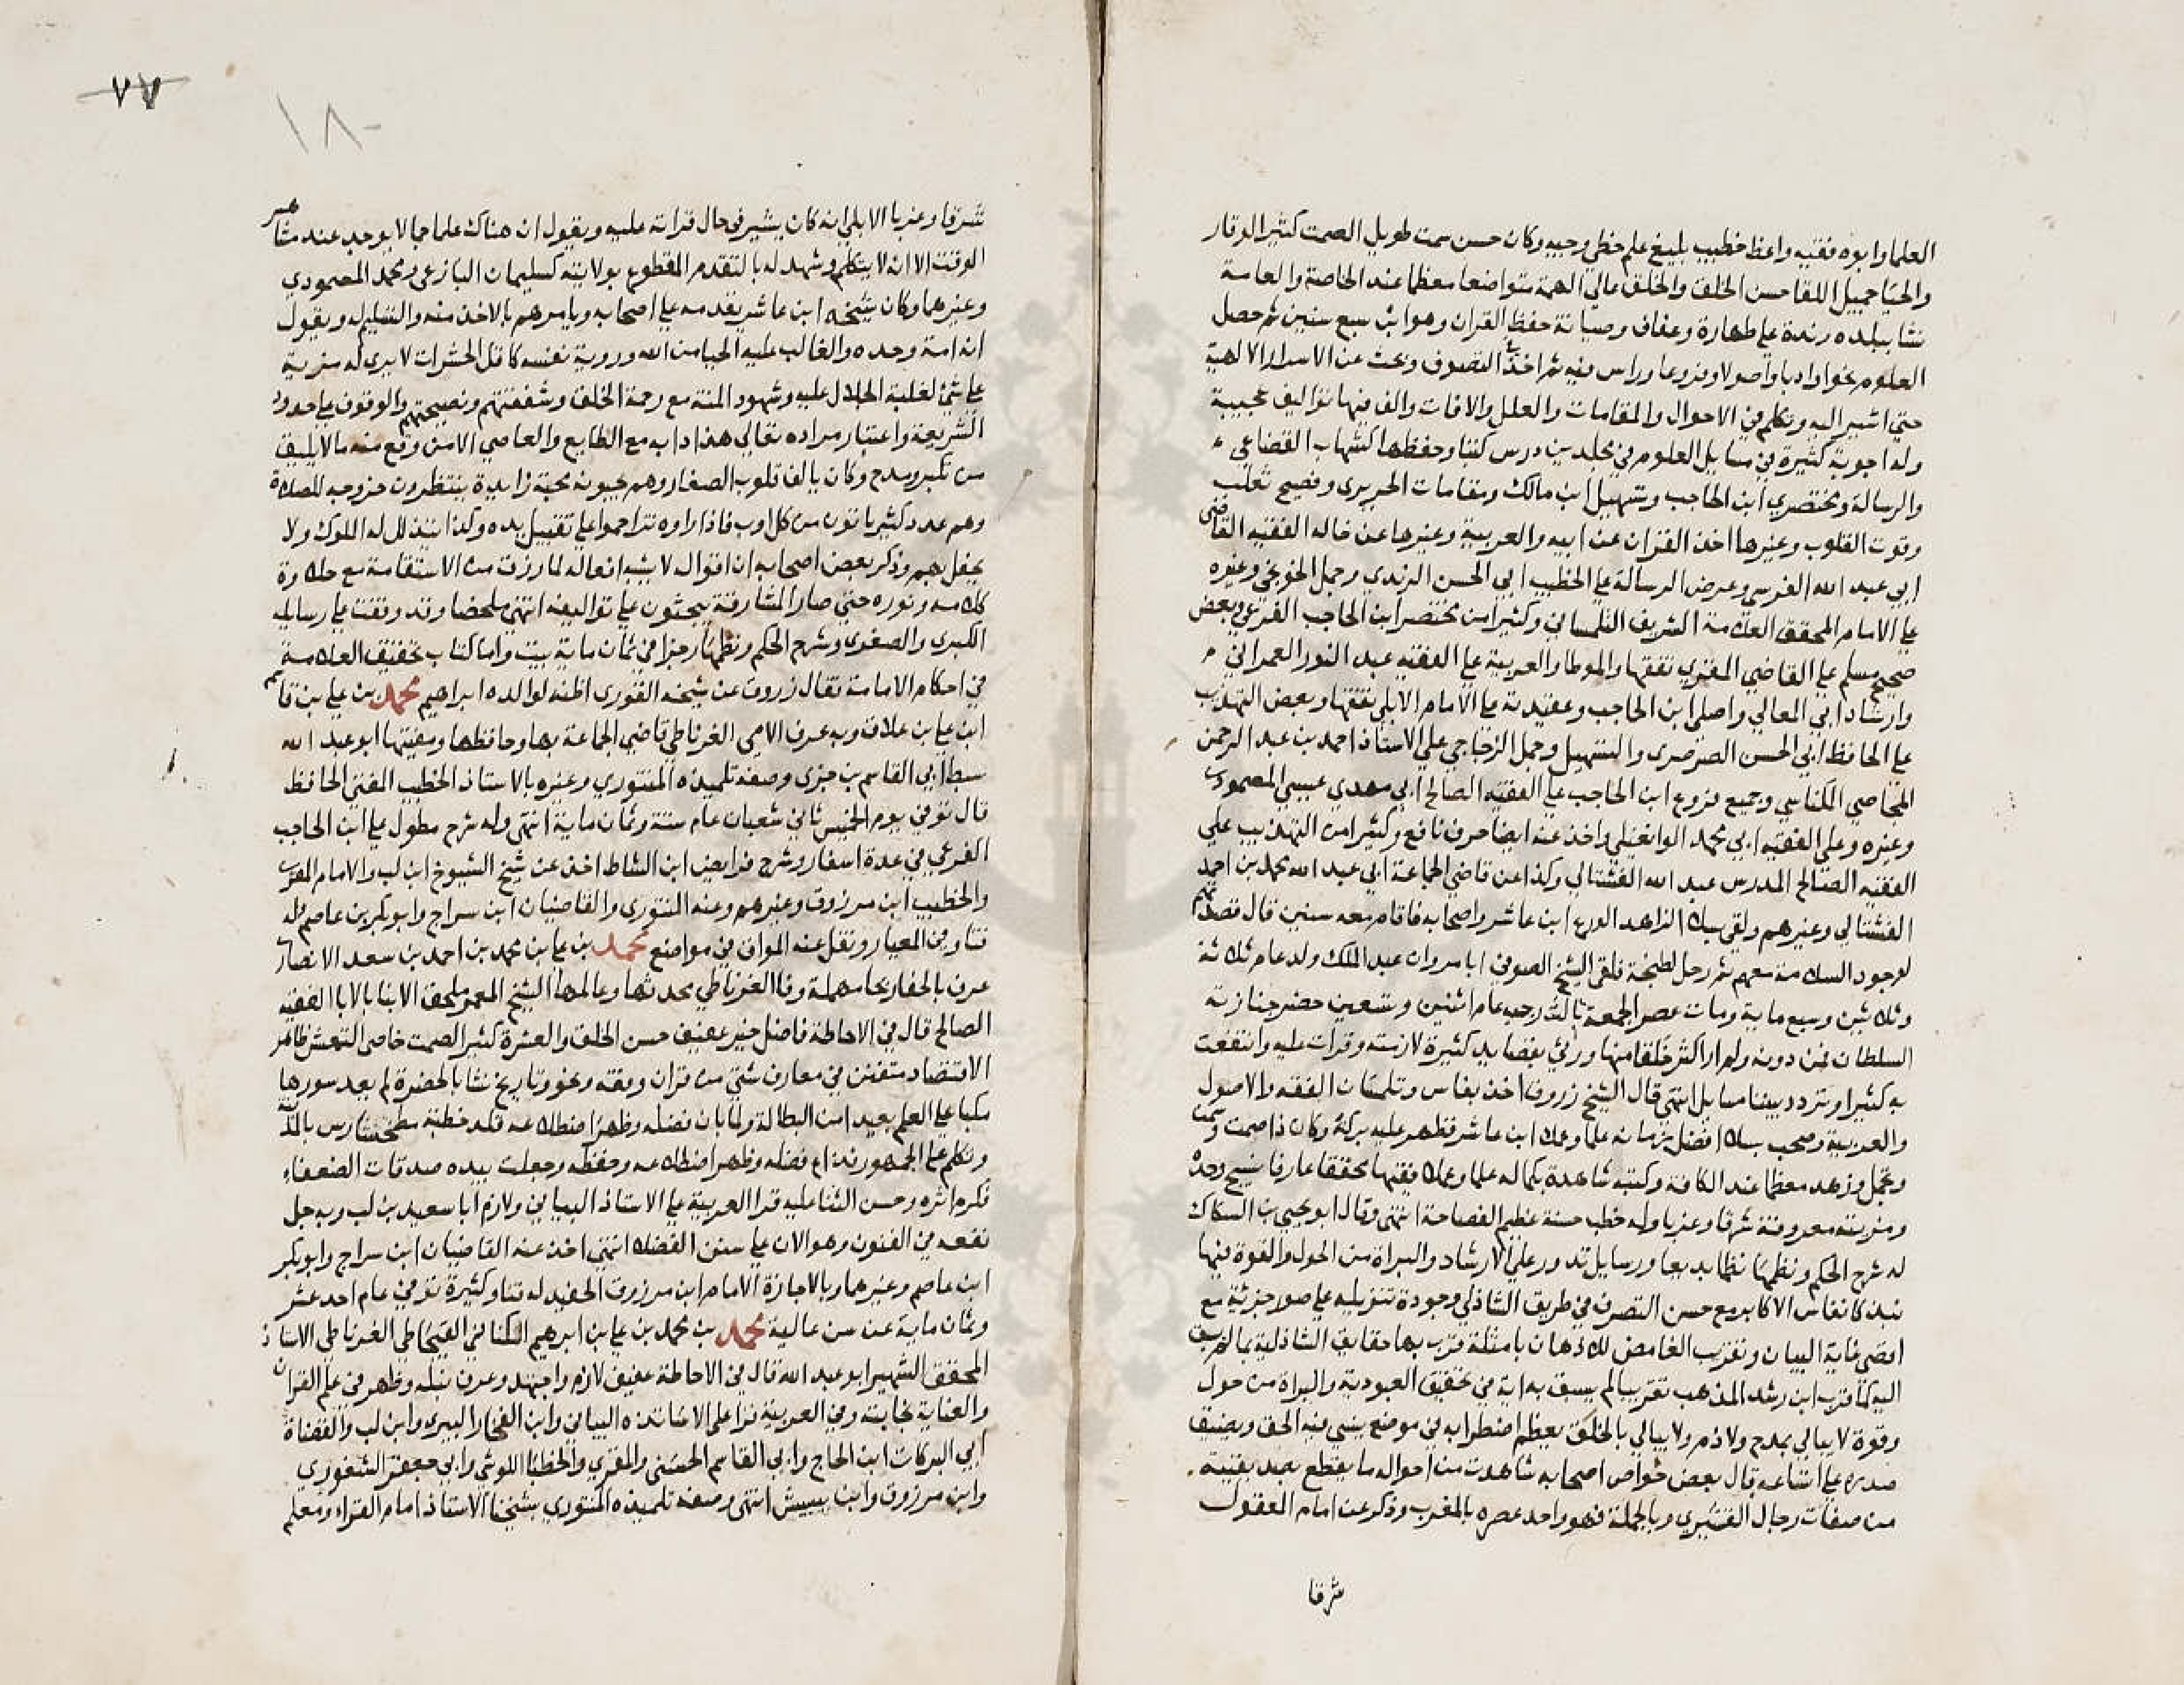 العلما وابوه فقيه واعظ خطيب بليغ علم حظي وجيه وكان حسن سمت طويل الصمت كثير الوقار
والحيا جميل اللقا حسن الخلق والخلق عالي الهمة متواضعا معظما عند الخاصة والعامة
نشا ببلده رندة علي طهارة وعفاف وصيانة حفظ القران وهو ابن سبع سنين ثم حصل
العلوم نحوا وادبا واصولا وفروعا وراس فيه ثم اخذ التصوف وبحث عن الاسرار الالهية
حتي اشير اليه وتكلم في الاحوال والمقامات والعلل والافات والف فيها تواليف عجيبة
وله اجوبة كثيرة في مسايل العلوم في مجلدين درس كتبا وحفظها كشهاب القضاعي
والرسالة ومختصري ابن الحاجب وتسهيل ابن مالك ومقامات الحريري وفصيح ثعلب
وقوت القلوب وغيرها اخذ القران عن ابيه والعربية وغيرها عن خاله الفقيه القاضي
ابي عبد الله الفرسي وعرض الرسالة علي الخطيب ابي الحسن الرندي وجمل الخونجي وغيره
علي الامام المحقق العلامة الشريف التلمساني وكثيرا من مختصر ابن الحاجب الفرعي وبعض
صحيح مسلم علي القاضي المقري تفقها والموطا والعربية علي الفقيه عبد النور العمراني
وارشاد ابي المعالي واصلي ابن الحاجب وعقيدته علي الامام الابلي تفقها وبعض التهذيب
علي الحافظ ابي الحسن الصرصري والتسهيل وجمل الزجاجي علي الاستاذ احمد بن عبد الرحمن
المجاصي المكناسي وجميع فروع ابن الحاجب علي الفقيه الصالح ابي مهدي عيسي المصمودي
وغيره وعلي الفقيه ابي محمد الوانغيلي واخذ عنه ايضا حرف نافع وكثيرا من التهذيب علي
الفقيه الصالح المدرس عبد الله الفشتالي وكذا عن قاضي الجماعة ابي عبد الله محمد بن احمد
الفشتالي وغيرهم ولقي بسلا الزاهد الورع ابن عاشر واصحابه فاقام معه سنين قال قصدتهم
لوجود السلامة معهم ثم رحل لطنجة فلقي الشيخ الصوفي ابا مروان عبد الملك ولد عام ثلاثة
وثلاثين وسبع ماية ومات عصر الجمعة ثالث رجب عام اثنين وتسعين حضر جنازته
السلطان فمن دونه ولم ار اكثر خلقا منها ورثي بقصايد كثيرة لازمته وقرات عليه وانتفعت
به كثيرا وتردد بيننا مسايل انتهي قال الشيخ زروق اخذ بفاس وتلمسان الفقه والاصول
والعربية وصحب بسلا افضل زمانه علما وعملا ابن عاشر فظهر عليه بركته وكان ذا صمت وسمت
وتجمل وزهد معظما عند الكافة وكتبه شاهدة بكماله علما وعملا فقيها محققا عارفا نسيج وحده
ومزيته معروفة شرقا وغربا وله خطب حسنة عظيم الفصاحة انتهي وقال ابو يحيي بن السكاك
له شرح الحكم ونظمها نظما بديعا ورسايل تدور علي الارشاد والبراة من الحول والقوة فيها
نبذ كانفاس الاكابر مع حسن التصرف في طريق الشاذلي وجودة تنزيله علي صور جزئية مع
اقصي غاية البيان وتقريب الغامض للاذهان بامثلة قرب بها حقايق الشاذلية بما لم يسبق
اليه كما قرب ابن رشد المذهب تقريبا لم يسبق به اية في تحقيق العبودية والبراة من حول
وقوة لا يبالي بمدح ولا ذم ولا يبالي بالخلق يعظم اضطرابه في موضع ينسي فيه الحق ويضيق
صدره علي اتساعه قال بعض خواص اصحابه شاهدت من احواله ما يقطع بصد بقيته
من صفات رجال القشيري وبالجملة فهو واحد عصره بالمغرب وذكر عن امام المعقول
شرقا
٧٧
١٨٠
شرقا وغربا الابلي انه كان يشير في حال قراته عليه ويقول ان هناك علما جما لا يوجد عند مشاهير
الوقت الا انه لا يتكلم وشهد له بالتقدم المقطوع بولايته كسليمان اليازغي ومحمد المصمودي
وغيرهما وكان شيخه ابن عاشر يقدمه علي اصحابه ويامرهم بالاخذ منه والتسليم له ويقول
انه امة وحده والغالب عليه الحيا من الله وروية نفسه كاقل الحشرات لا يري له مزية
علي شي لغلبة الجلال عليه وشهود المنة مع رحمة الخلق وشفقتهم ونصيحتهم والوقوف علي حدود
الشريعة واعتبار مراده تعالي هذا دابه مع الطايع والعاصي الا من وقع منه ما لا يليق
من تكبر ومدح وكان يالف قلوب الصغار وهم يحبونه محبة زايدة ينتظرون خروجه للصلاة
وهم عدد كثير ياتون من كل اوب فاذا راوه تزاحموا علي تقبيل يده وكذا يتذلل له الملوك ولا
يحفل بهم وذكر بعض اصحابه ان اقواله لا يشبه افعاله لما رزقت من الاستقامة مع حلاوة
كلامه ونوره حتي صار المشارقة يبحثون علي تواليفه انتهي ملخصا وقد وقفت علي رسايله
الكبري والصغري وشرح الحكم ونظمها رجزا في ثمان ماية بيت واما كتاب تحقيق العلامة
في احكام الامامة فقال زروق عن شيخه القوري اظنه لوالده ابراهيم محمد بن علي بن قاسم
ابن علي بن علاق وبه عرف الامي الغرناطي قاضي الجماعة بها وحافظها ومفتيها ابو عبد الله
سبط ابي القاسم بن جزي وصفه تلميذه المنتوري وغيره بالاستاذ الخطيب المفتي الحافظ
قال توفي يوم الخميس ثاني شعبان عام ستة وثمان ماية انتهي وله شرح مطول علي ابن الحاجب
الفرعي في عدة اسفار وشرح فرايض ابن الشاط اخذ عن شيخ الشيوخ ابن لب والامام المقري
والخطيب ابن مرزوق وغيرهم وعنه المنتوري والقاضيان ابن سراج وابو بكر بن عاصم وله
فتاو في المعيار ونقل عنه المواق في مواضع محمد بن علي بن محمد بن احمد بن سعد الانصاري
عرف بالحفار بحا مهملة وفا الغرناطي محدثها وعالمها الشيخ المعمر ملحق الابنا بالابا الفقيه
الصالح قال في الاحاطة فاضل خير عفيف حسن الخلق والعشرة كثير الصمت خاصي التمعش ظاهر
الاقتصاد متفنن في معارف شتي من قران وفقه ونحو وتاريخ نشا بالحضرة لم يعد سورها
مكبا علي العلم بعيدا من البطالة ولما بان فضله وظهر اضطلاعه قلد خطبة
وتكلم علي الجمهور فذاع فضله وظهر اضطلاعه وحفظه وجعلت بيده صدقات الضعفاء
فكرم اثره وحسن الثنا عليه قرا العربية علي الاستاذ البياني ولازم ابا سعيد بن لب وبه جل
نفعه في الفنون وهو الان علي سنن الفضلا انتهي اخذ عنه القاضيان ابن سراج وابو بكر
ابن عاصم وغيرهما وبالاجازة الامام ابن مرزوق الحفيد له فتاو كثيرة توفي عام احد عشر
وثمان ماية عن سن عالية محمد بن محمد بن علي بن ابرهيم الكناني القيجاطي الغرناطي الاستاذ
المحقق الشهير ابو عبد الله قال في الاحاطة عفيف لازم واجتهد وعرف نبله وظهر في علم القران
والعناية نجابته وفي العربية قرا علي الاساتذه البياني وابن الفخار البيري وابن لب والقضاة
ابي البركات ابن الحاج وابي القاسم الحسني والمقري والخطبا اللوشي وابي جعفر الشقوري
وابن مرزوق وابن بيبش انتهي وصفه تلميذه المنتوري بشيخنا الاستاذ امام القراء ومعلم